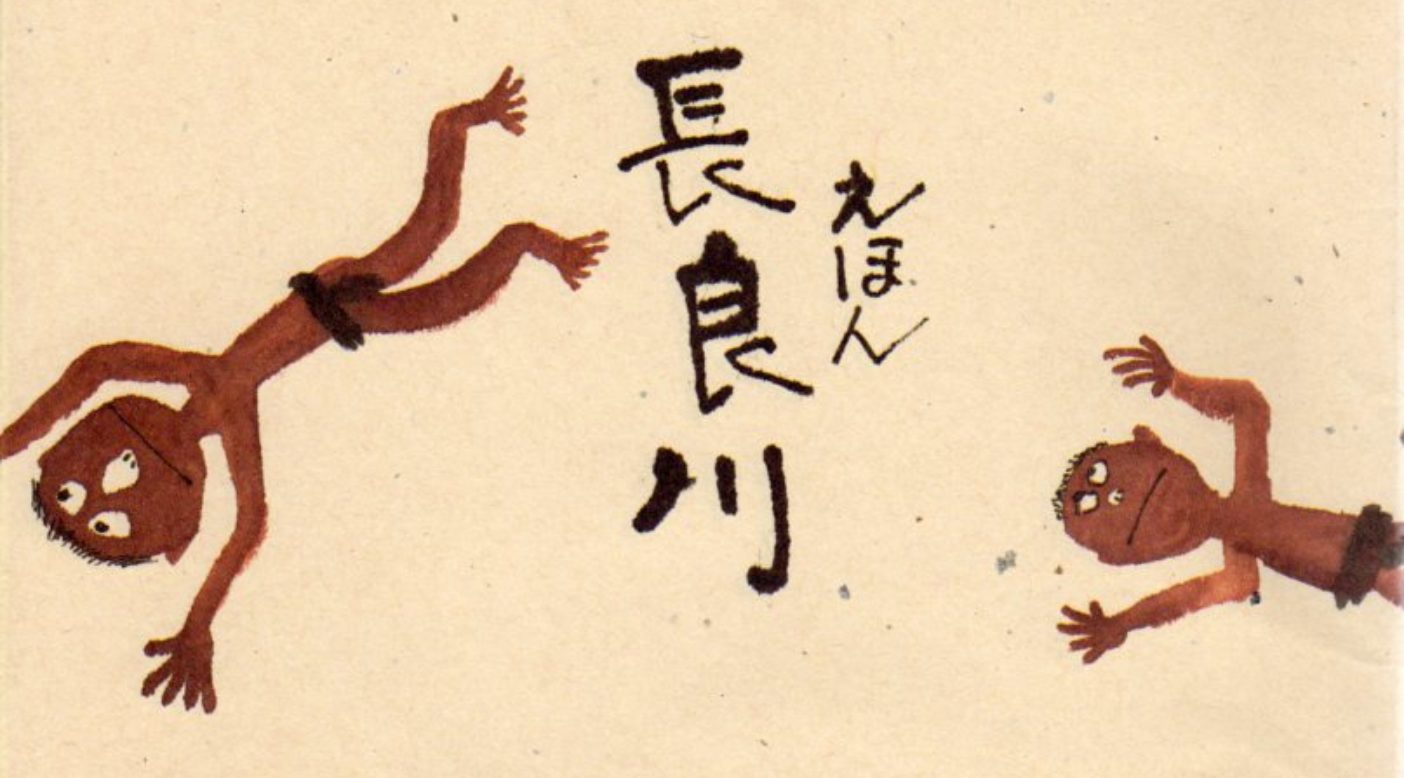 えほん
長良川